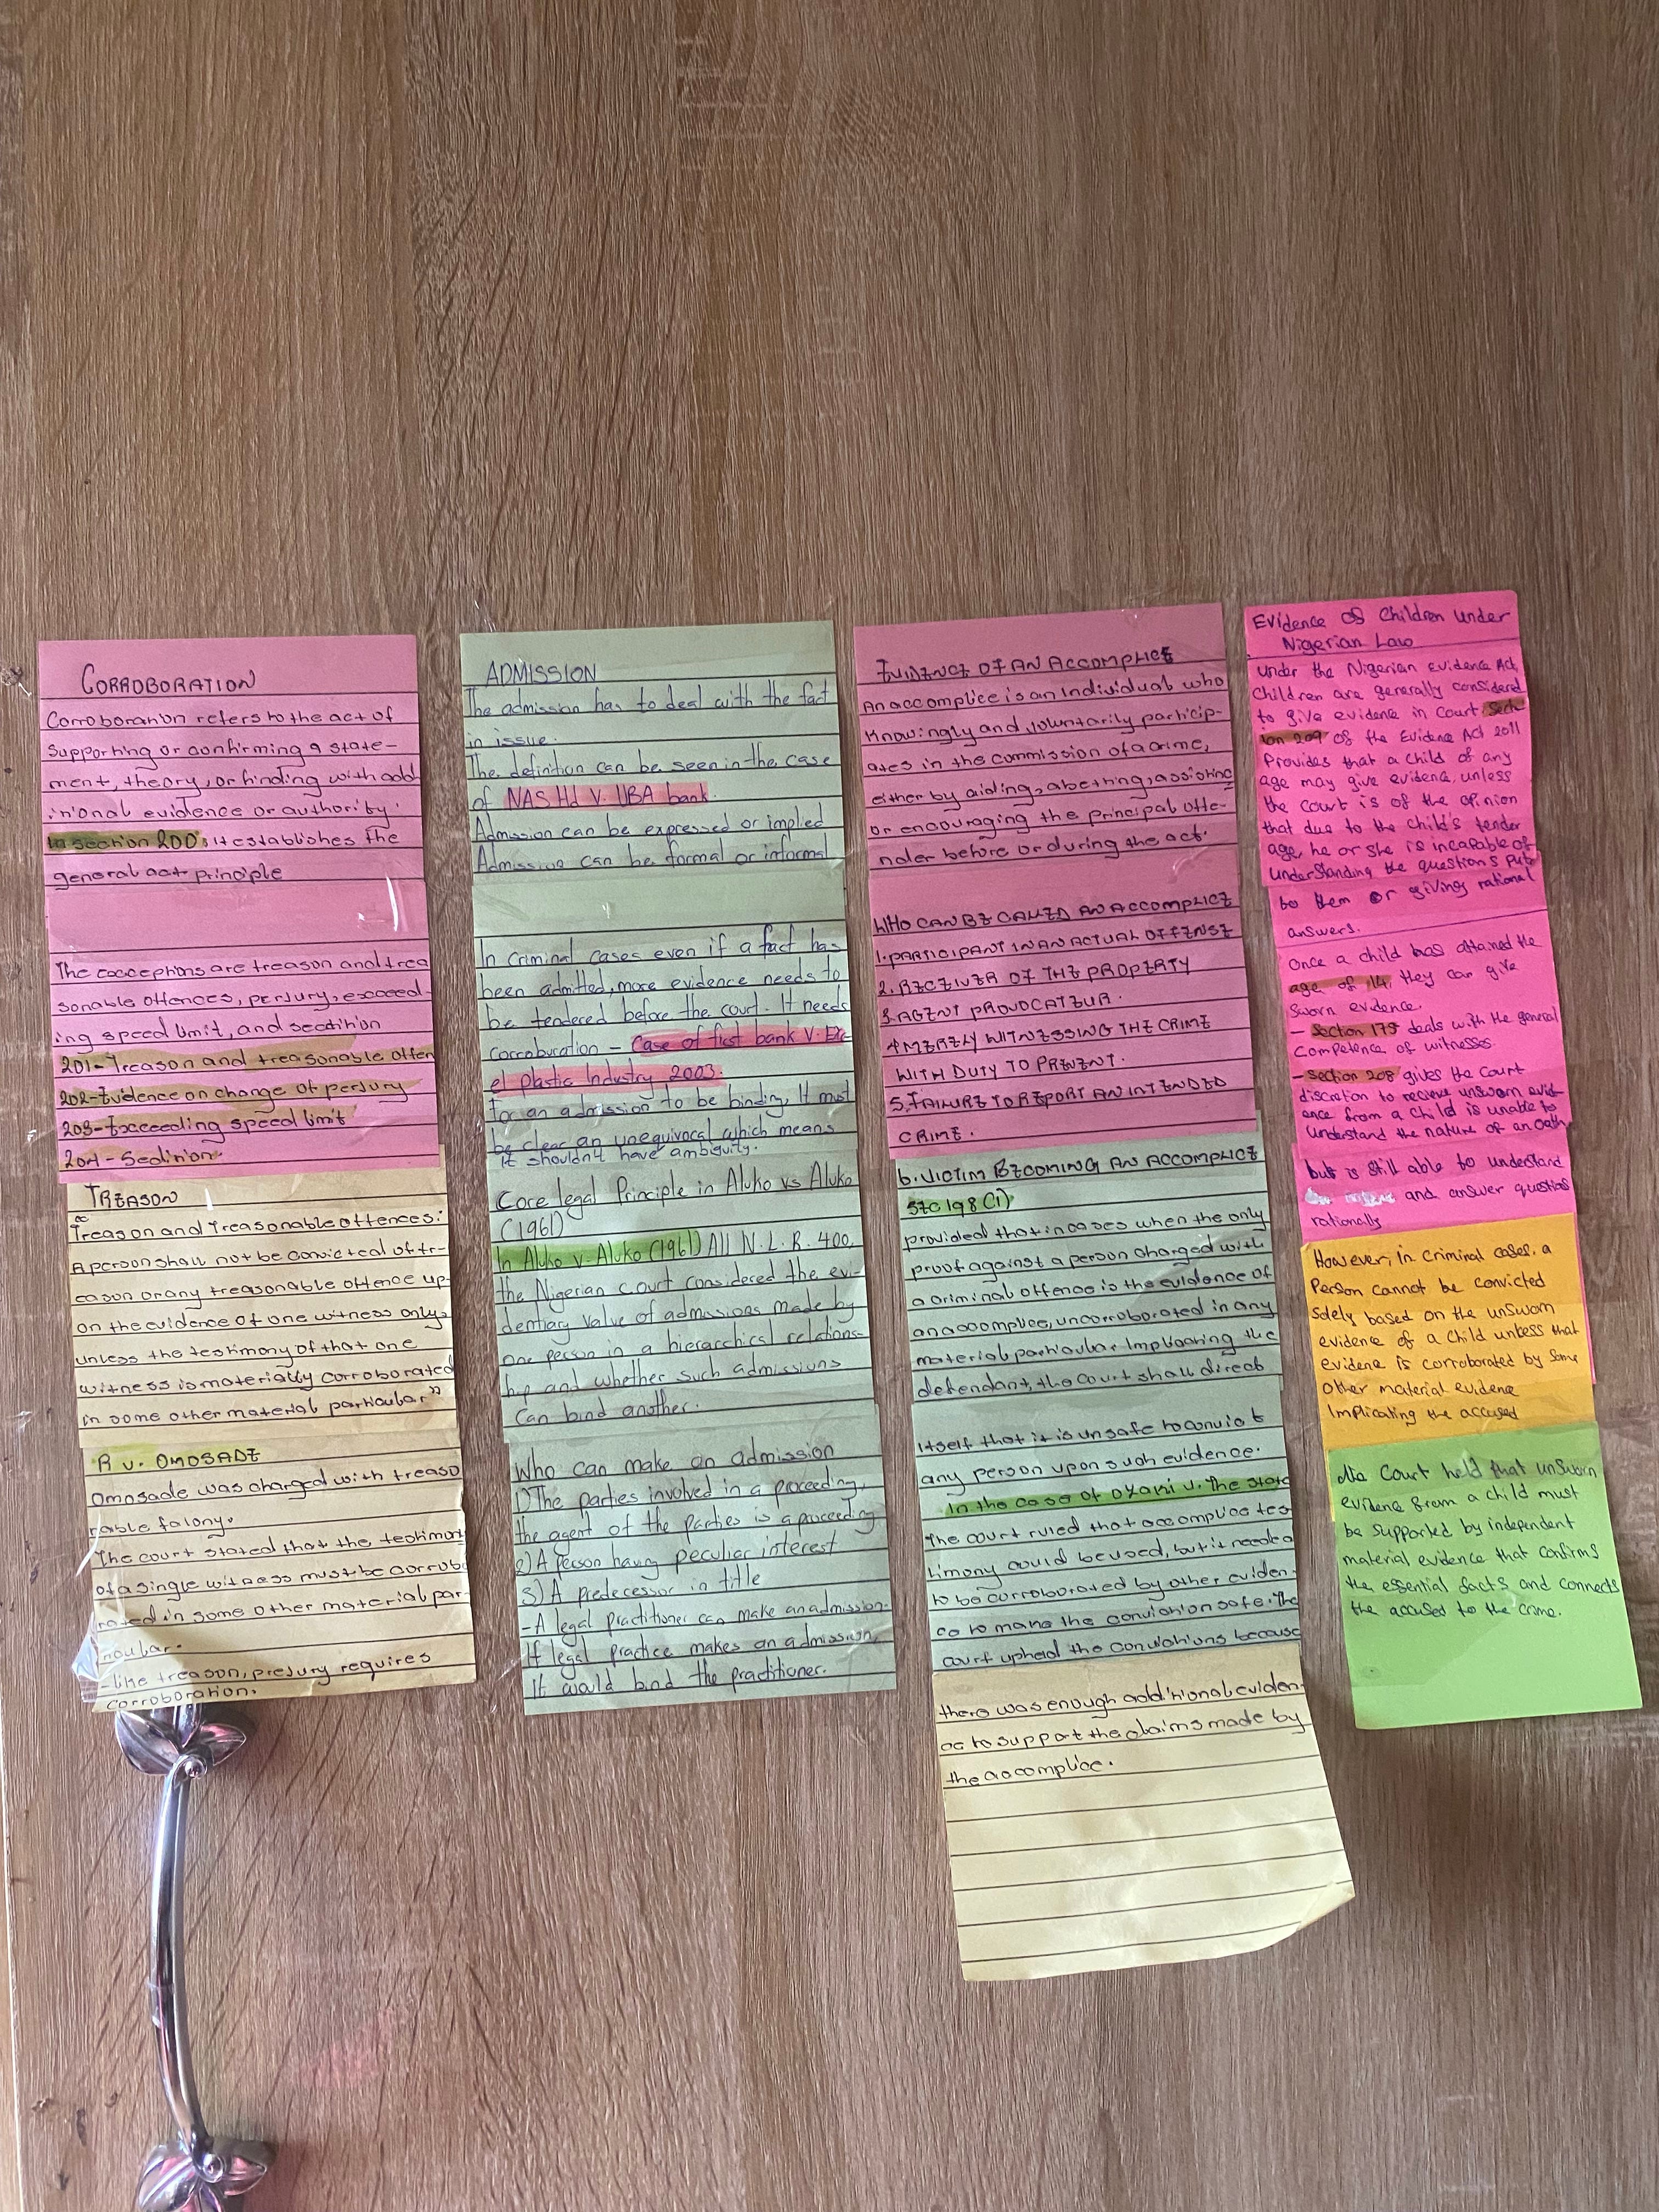 CORROBORATION
Corroboration refers to the act of
supporting or confirming a state-
ment, theory, or finding with add
itional evidence or authority.
In section 200, it establishes the
general act principle
The exceptions are treason and trea
sonable offences, perjury, exceed-
ing speed limit, and sedition
201-Treason and treasonable offen
202-Evidence on change of perjury
203-Exceeding speed limit
204-Sedition.
TREASON
"Treason and Treasonable offences:
A person shall not be convicted of tr-
eason or any treasonable offence up-
on the evidence of one witness only,
unless the testimony of that one
witness is materially corroborated
in some other material particular"
R v. OMOSADE
Omosade was charged with treaso
nable falony.
The court stated that the testimon
of a single witness must be corrob
rated in some other material par-
ticular.
-like treason, prejury requires
corroboration.
ADMISSION
The admission has to deal with the fact
in issue.
The definition can be seen in the case
of NAS ltd V. UBA bank.
Admission can be expressed or implied
Admission can be formal or informal
In Criminal cases even if a fact has
been admitted, more evidence needs to
be tendered before the court. It needs
corroburation - Case of first bank v. Exc
el plastic Industry 2003.
For an admission to be binding, It must
be clear an unequivocal which means
it shouldn't have ambiguity.
Core legal Principle in Aluko vs Aluko
(1961)
In Aluko v. Aluko (1961) All N. L. R. 400,
the Nigerian court considered the evi-
dentiary value of admissions made by
one person in a hierarchical relations-
hip and whether such admissions
can bind another.
Who can make an admission
1) The parties involved in a proceeding,
the agent of the parties is a proceeding
2) A person having peculiar interest
3) A predecessor in title
-A legal practitioner can make an admission.
If legal practice makes an admission,
It would bind the practitioner.
EVIDENCE OF AN ACCOMPLICE
An accomplice is an individual who
knowingly and voluntarily particip-
ates in the commission of a crime,
either by aiding, abetting, assisting
or encouraging the principal offe-
nder before or during the act.
WHO CAN BE CALLED AN ACCOMPLICE
1. PARTICIPANT IN AN ACTUAL OFFENSE
2. RECEIVER OF THE PROPERTY
3. AGENT PROVOCATEUR.
4 MERELY WITNESSING THE CRIME
WITH DUTY TO PREVENT.
5. FAILURE TO REPORT AN INTENDED
CRIME.
6. VICTIM BECOMING AN ACCOMPLICE
SEC 198 (1)
provided that in cases when the only
proof against a person charged with
a criminal offence is the evidence of
an accomplice, uncorroborated in any
material particular implicating the
defendant, the court shall direct
itself that it is unsafe to convict
any person upon such evidence.
In the case of Oyani v. The state
The court ruled that accomplice tes
timony could be used, but it needed
to be corroborated by other eviden-
ce to make the conviction safe. The
court upheld the convictions because
there was enough additional eviden-
ce to support the claims made by
the accomplice.
Evidence of Children Under
Nigerian Law
Under the Nigerian Evidence Act,
Children are generally considered
to give evidence in Court. Sect-
ion 209 of the Evidence Act 2011
Provides that a child of any
age may give evidence, unless
the court is of the opinion
that due to the child's tender
age, he or she is incapable of
understanding the questions put
to them or giving rational
answers.
Once a child has attained the
age of 14, they can give
sworn evidence.
- Section 175 deals with the general
competence of witnesses.
- Section 208 gives the Court
discretion to receive unsworn evid-
ence from a child is unable to
understand the nature of an oath
but is still able to understand
and answer question
rationally
However, in criminal cases, a
Person cannot be convicted
solely based on the unsworn
evidence of a child unless that
evidence is corroborated by some
other material evidence
Implicating the accused
The Court held that unsworn
evidence from a child must
be supported by independent
material evidence that confirms
the essential facts and connects
the accused to the crime.